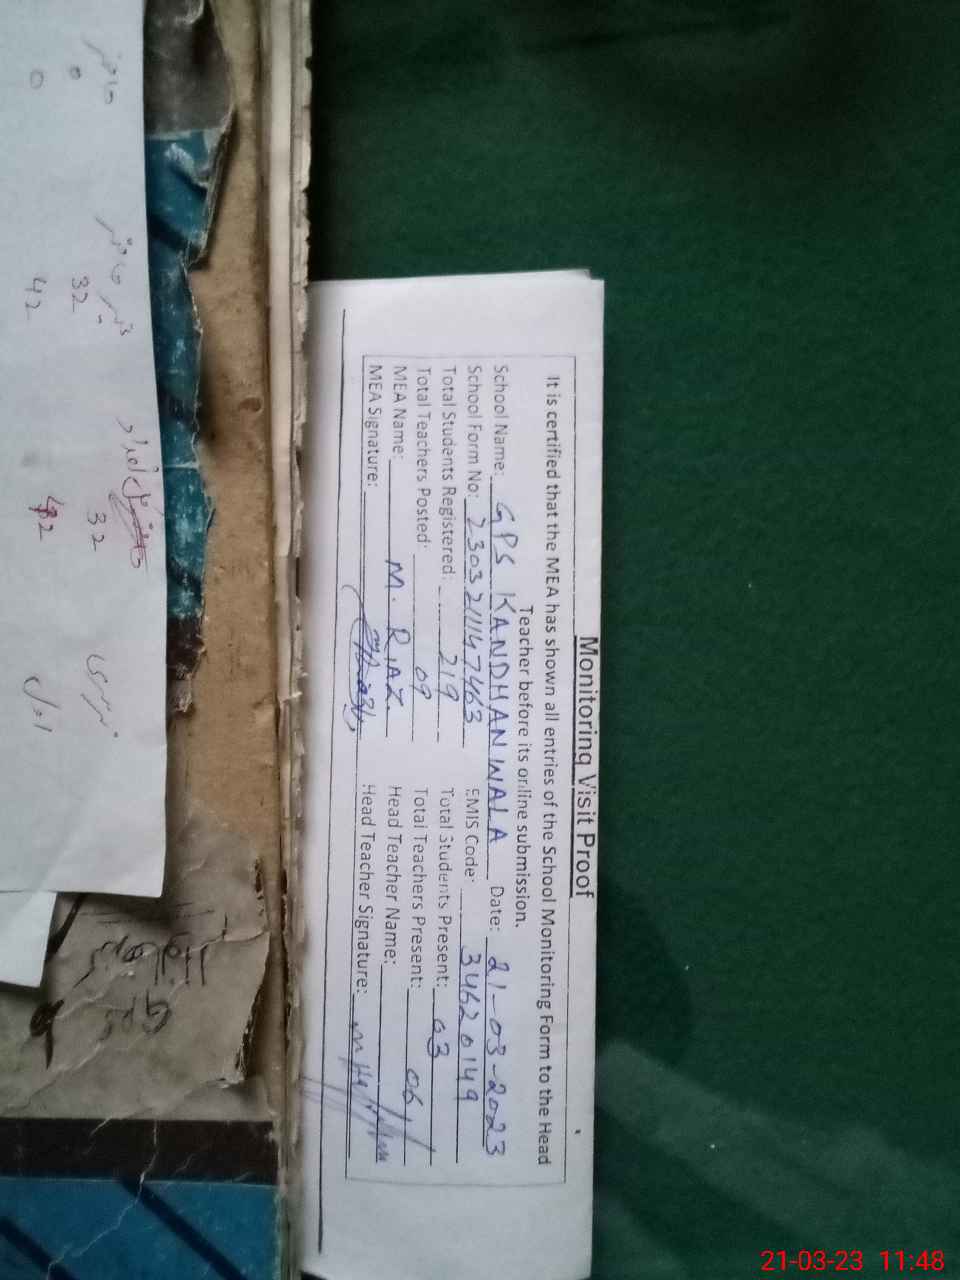 Monitoring Visit Proof
It is certified that the MEA has shown all entries of the School Monitoring Form to the Head
Teacher before its online submission.
School Name: GPS KANDHANWALA Date: 21-03-2023
School Form No: 2303211147463 EMIS Code: 34620149
Total Students Registered: 219 Total Students Present: 03
Total Teachers Posted: 09 Total Teachers Present: 06
MEA Name: M. RIAZ Head Teacher Name:
MEA Signature: Head Teacher Signature:
حاضر غیر حاضر تعداد نرسری
0 32 32
0 42 42 اول
21-03-23 11:48